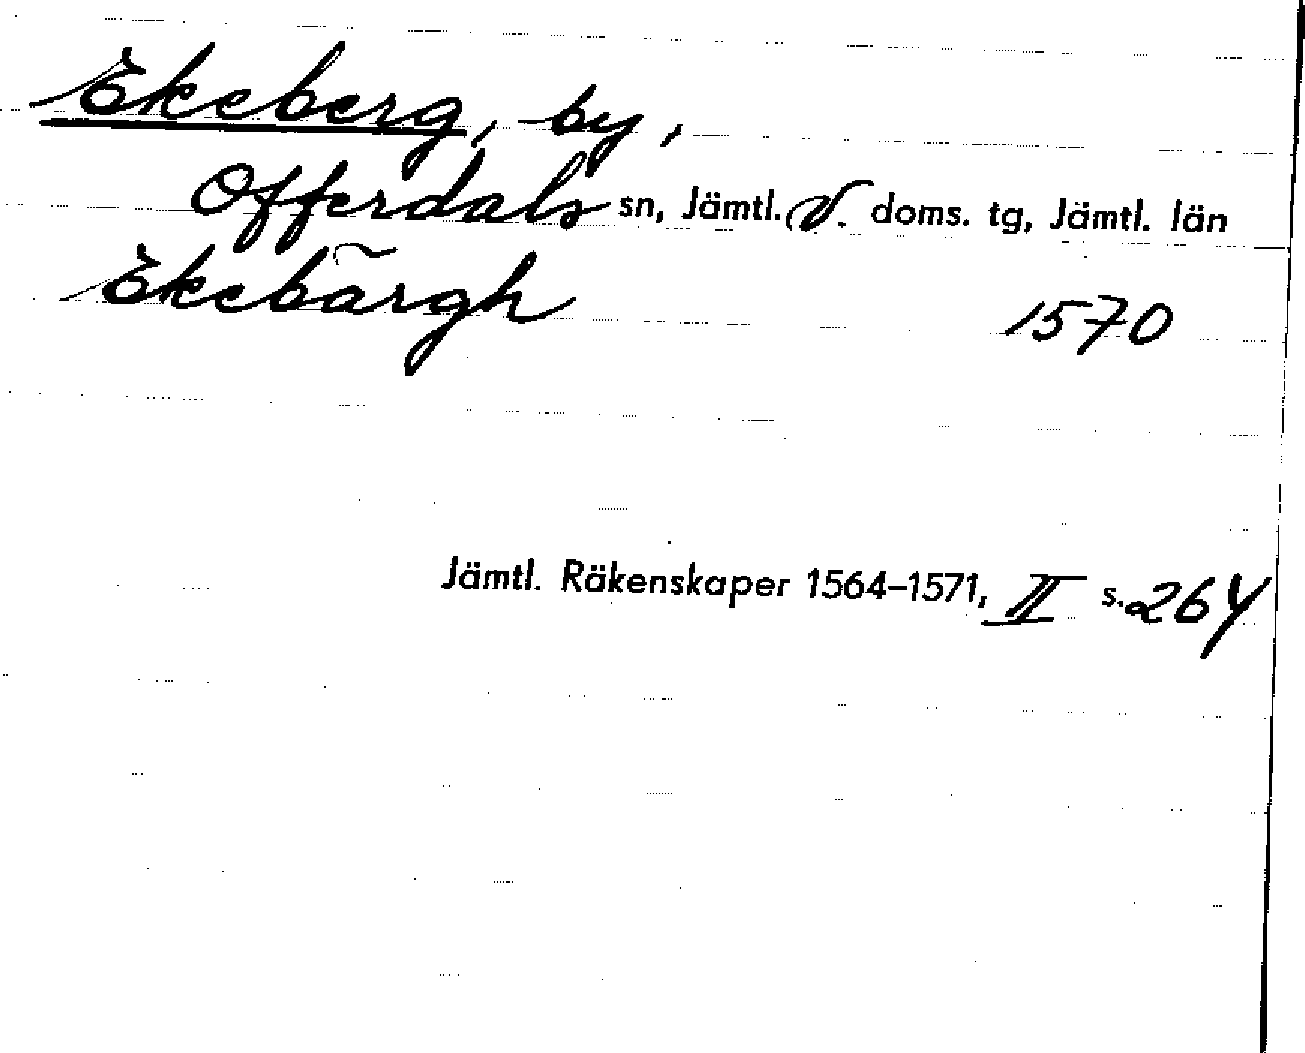 Ekeberg, by,
Offerdals sn, Jämtl. V. doms. tg, Jämtl. län
Ekebãrgh 1570
Jämtl. Räkenskaper 1564–1571, II s. 264